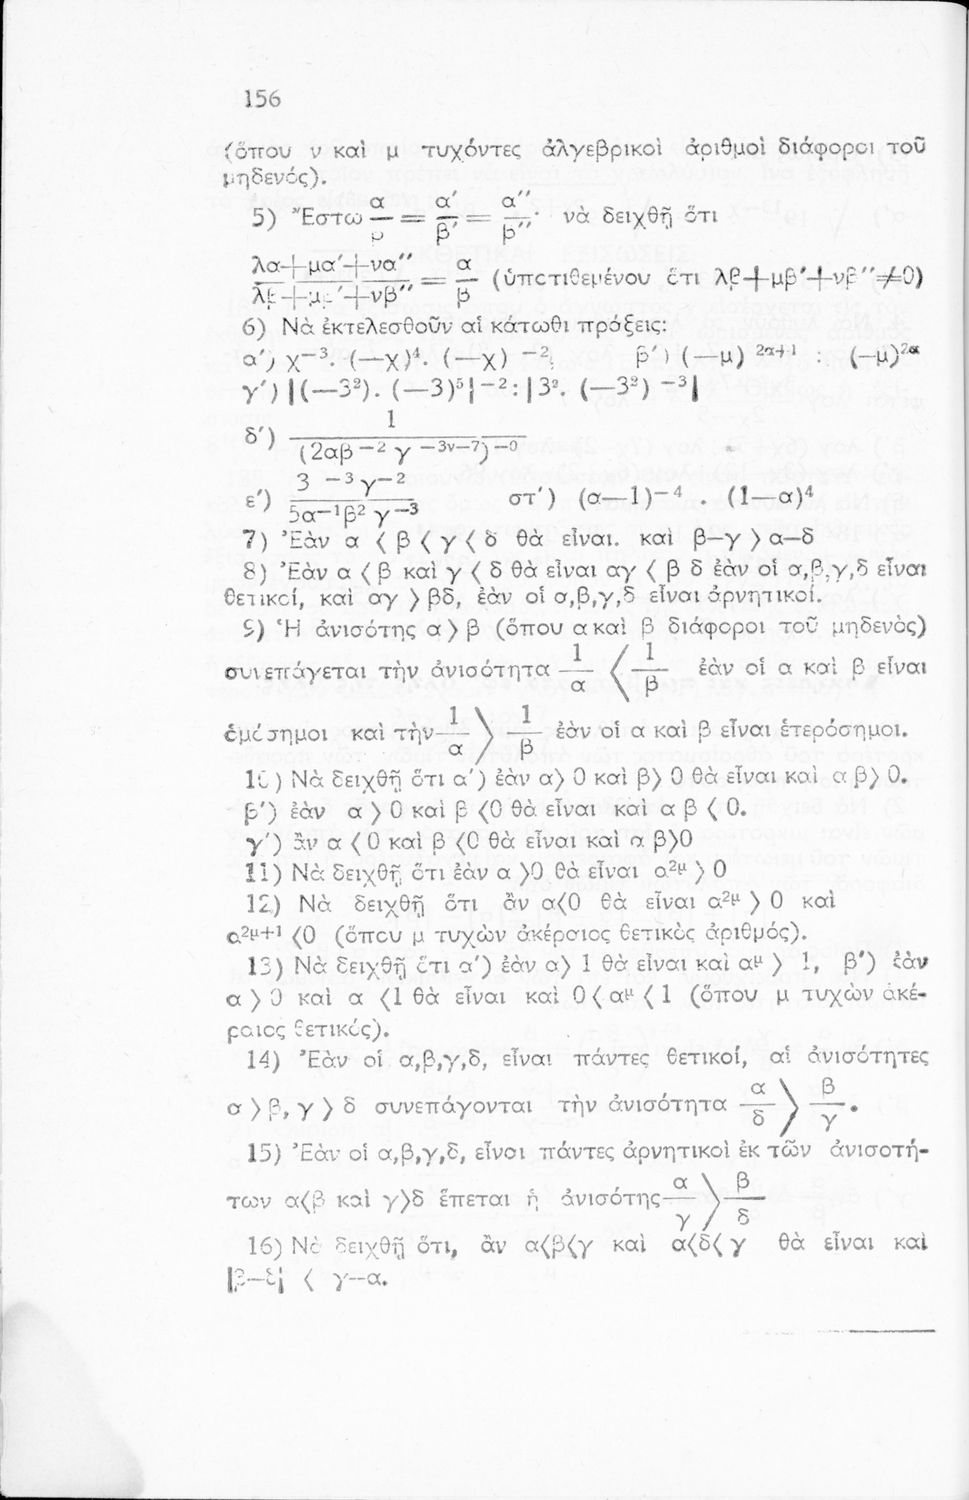 156
(ὅπου ν καὶ μ τυχόντες ἀλγεβρικοὶ ἀριθμοὶ διάφοροι τοῦ
μηδενός).
5) Ἔστω α/β = α΄/β΄ = α΄΄/β΄΄· νὰ δειχθῇ ὅτι
λα+μα΄+να΄΄/λβ+μβ΄+νβ΄΄ = α/β (ὑποτιθεμένου ὅτι λβ+μβ΄+νβ΄΄≠0)
6) Νὰ ἐκτελεσθοῦν αἱ κάτωθι πράξεις:
α΄) χ⁻³. (—χ)⁴. (—χ) ⁻². β΄) (—μ) ²ᵅ⁺¹ : (—μ)²ᵅ
γ΄) |(—3²). (—3)⁵|⁻²: |3². (—3²) ⁻³|
δ΄) 1/(2αβ ⁻² γ ⁻³ᵛ⁻⁷)⁻⁰
ε΄) 3 ⁻³ γ⁻²/5α⁻¹β² γ⁻³ στ΄) (α—1)⁻⁴ . (1—α)⁴
7) Ἐὰν α ⟨ β ⟨ γ ⟨ δ θὰ εἶναι. καὶ β—γ ⟩ α—δ
8) Ἐὰν α ⟨ β καὶ γ ⟨ δ θὰ εἶναι αγ ⟨ β δ ἐὰν οἱ α,β,γ,δ εἶναι
θετικοί, καὶ αγ ⟩ βδ, ἐὰν οἱ α,β,γ,δ εἶναι ἀρνητικοί.
9) Ἡ ἀνισότης α ⟩ β (ὅπου α καὶ β διάφοροι τοῦ μηδενὸς)
συνεπάγεται τὴν ἀνισότητα 1/α ⟨ 1/β ἐὰν οἱ α καὶ β εἶναι
ὁμόσημοι καὶ τὴν 1/α ⟩ 1/β ἐὰν οἱ α καὶ β εἶναι ἑτερόσημοι.
10) Νὰ δειχθῇ ὅτι α΄) ἐὰν α⟩ 0 καὶ β⟩ 0 θὰ εἶναι καὶ α β⟩ 0.
β΄) ἐὰν α ⟩ 0 καὶ β ⟨0 θὰ εἶναι καὶ α β ⟨ 0.
γ΄) ἂν α ⟨ 0 καὶ β ⟨0 θὰ εἶναι καὶ α β⟩0
11) Νὰ δειχθῇ ὅτι ἐὰν α ⟩0 θὰ εἶναι α²ᵘ ⟩ 0
12) Νὰ δειχθῇ ὅτι ἂν α⟨0 θὰ εἶναι α²ᵘ ⟩ 0 καὶ
α²ᵘ⁺¹ ⟨0 (ὅπου μ τυχὼν ἀκέραιος θετικὸς ἀριθμός).
13) Νὰ δειχθῇ ὅτι α΄) ἐὰν α⟩ 1 θὰ εἶναι καὶ αᵘ ⟩ 1, β΄) ἐὰν
α ⟩ 0 καὶ α ⟨1 θὰ εἶναι καὶ 0 ⟨ αᵘ ⟨ 1 (ὅπου μ τυχὼν ἀκέ-
ραιος θετικός).
14) Ἐὰν οἱ α,β,γ,δ, εἶναι πάντες θετικοί, αἱ ἀνισότητες
α ⟩ β, γ ⟩ δ συνεπάγονται τὴν ἀνισότητα α/δ ⟩ β/γ.
15) Ἐὰν οἱ α,β,γ,δ, εἶναι πάντες ἀρνητικοὶ ἐκ τῶν ἀνισοτή-
των α⟨β καὶ γ⟩δ ἕπεται ἡ ἀνισότης α/γ ⟩ β/δ
16) Νὰ δειχθῇ ὅτι, ἂν α⟨β⟨γ καὶ α⟨δ⟨ γ θὰ εἶναι καὶ
|β—δ| ⟨ γ—α.